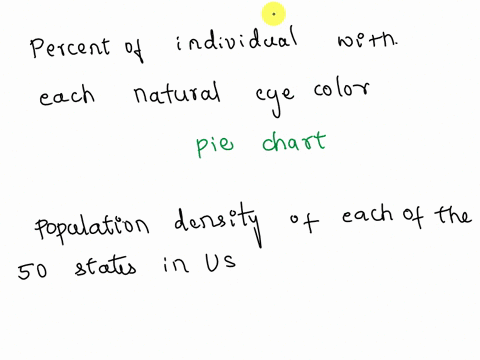 Percent of individual with
each natural eye color
pie chart
Population density of each of the
50 states in US